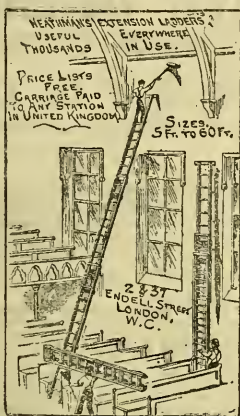 HEATHMAN'S EXTENSION LADDERS
USEFUL EVERYWHERE
THOUSANDS IN USE.
PRICE LISTS
FREE.
CARRIAGE PAID
TO ANY STATION
IN UNITED KINGDOM
SIZES.
5 FT. TO 60 FT.
2 & 37
ENDELL STREET
LONDON,
W.C.